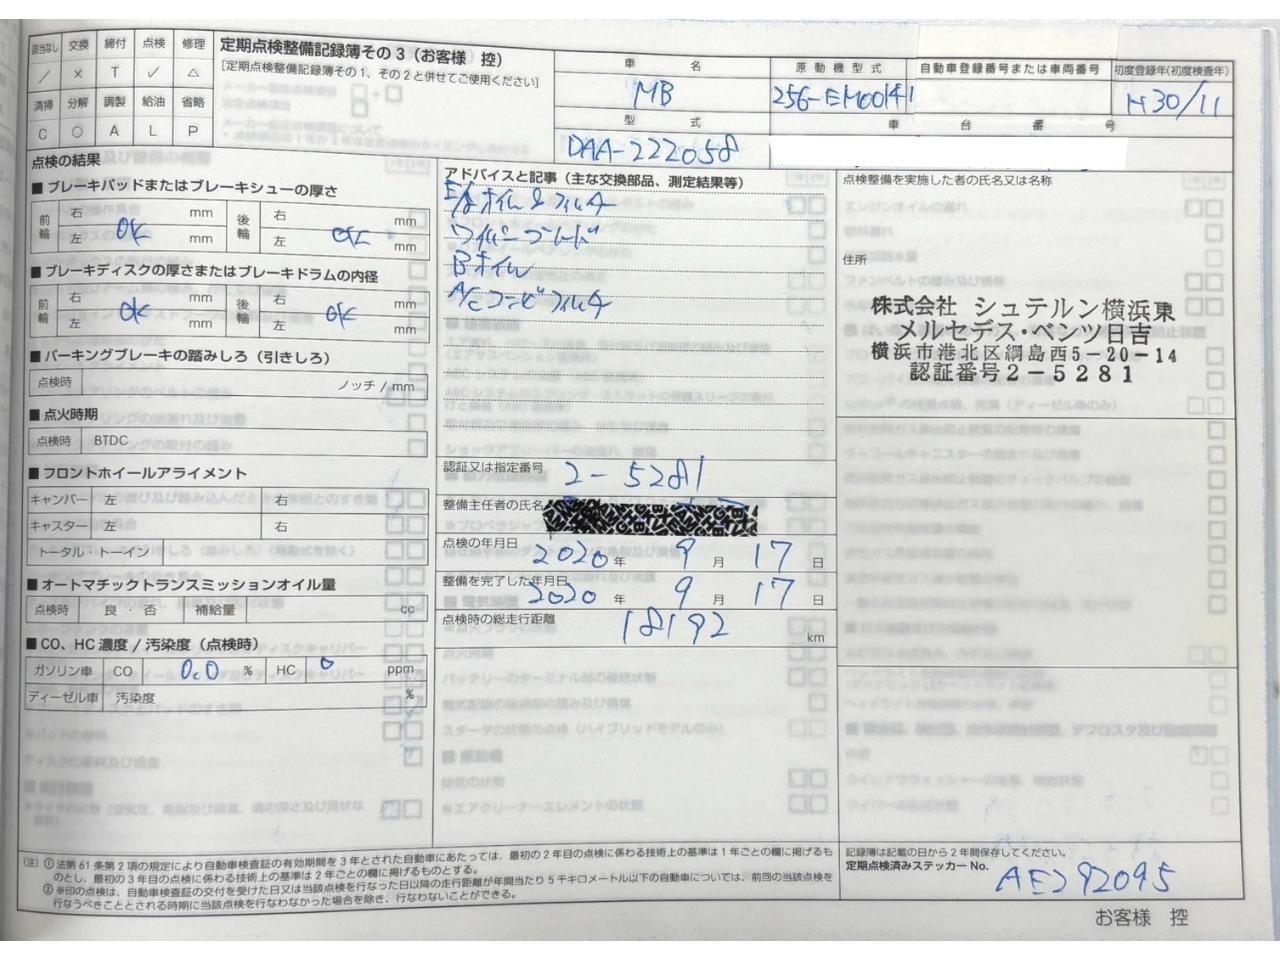 該当なし 交換 締付 点検 修理
／ × T ✓ △
清掃 分解 調製 給油 省略
C ○ A L P
定期点検整備記録簿その3（お客様 控）
［定期点検整備記録簿その1、その2と併せてご使用ください］
車 名
MB
原動機型式
256-EM00141
自動車登録番号または車両番号
初度登録年(初度検査年)
H30/11
型 式
DAA-222058
車 台 番 号
点検の結果
■ ブレーキパッドまたはブレーキシューの厚さ
前輪 右 mm 後輪 右 mm
左 OK mm 左 OK mm
■ ブレーキディスクの厚さまたはブレーキドラムの内径
前輪 右 mm 後輪 右 mm
左 OK mm 左 OK mm
■ パーキングブレーキの踏みしろ（引きしろ）
点検時 ノッチ / mm
■ 点火時期
点検時 BTDC
■ フロントホイールアライメント
キャンバー 左 右
キャスター 左 右
トータル・トーイン
■ オートマチックトランスミッションオイル量
点検時 良・否 補給量 cc
■ CO、HC 濃度 / 汚染度（点検時）
ガソリン車 CO 0.0 % HC 0 ppm
ディーゼル車 汚染度 %
アドバイスと記事（主な交換部品、測定結果等）
E/gオイル&フィルター
ワイパーブレード
Bオイル
A/Cコンビフィルター
認証又は指定番号 2-5281
整備主任者の氏名
点検の年月日 2020 年 9 月 17 日
整備を完了した年月日 2020 年 9 月 17 日
点検時の総走行距離 18192 km
点検整備を実施した者の氏名又は名称
住所
株式会社 シュテルン横浜東
メルセデス・ベンツ日吉
横浜市港北区綱島西5-20-14
認証番号2-5281
（注）① 法第61条第2項の規定により自動車検査証の有効期間を3年とされた自動車にあたっては、最初の2年目の点検に係わる技術上の基準は1年ごとの欄に掲げるものとし、最初の3年目の点検に係わる技術上の基準は2年ごとの欄に掲げるものとする。
② ※印の点検は、自動車検査証の交付を受けた日又は当該点検を行なった日以降の走行距離が年間当たり5千キロメートル以下の自動車については、前回の当該点検を行なうべきこととされる時期に当該点検を行なわなかった場合を除き、行なわないことができる。
記録簿は記載の日から2年間保存してください。
定期点検済みステッカー No.
AE292095
お客様 控